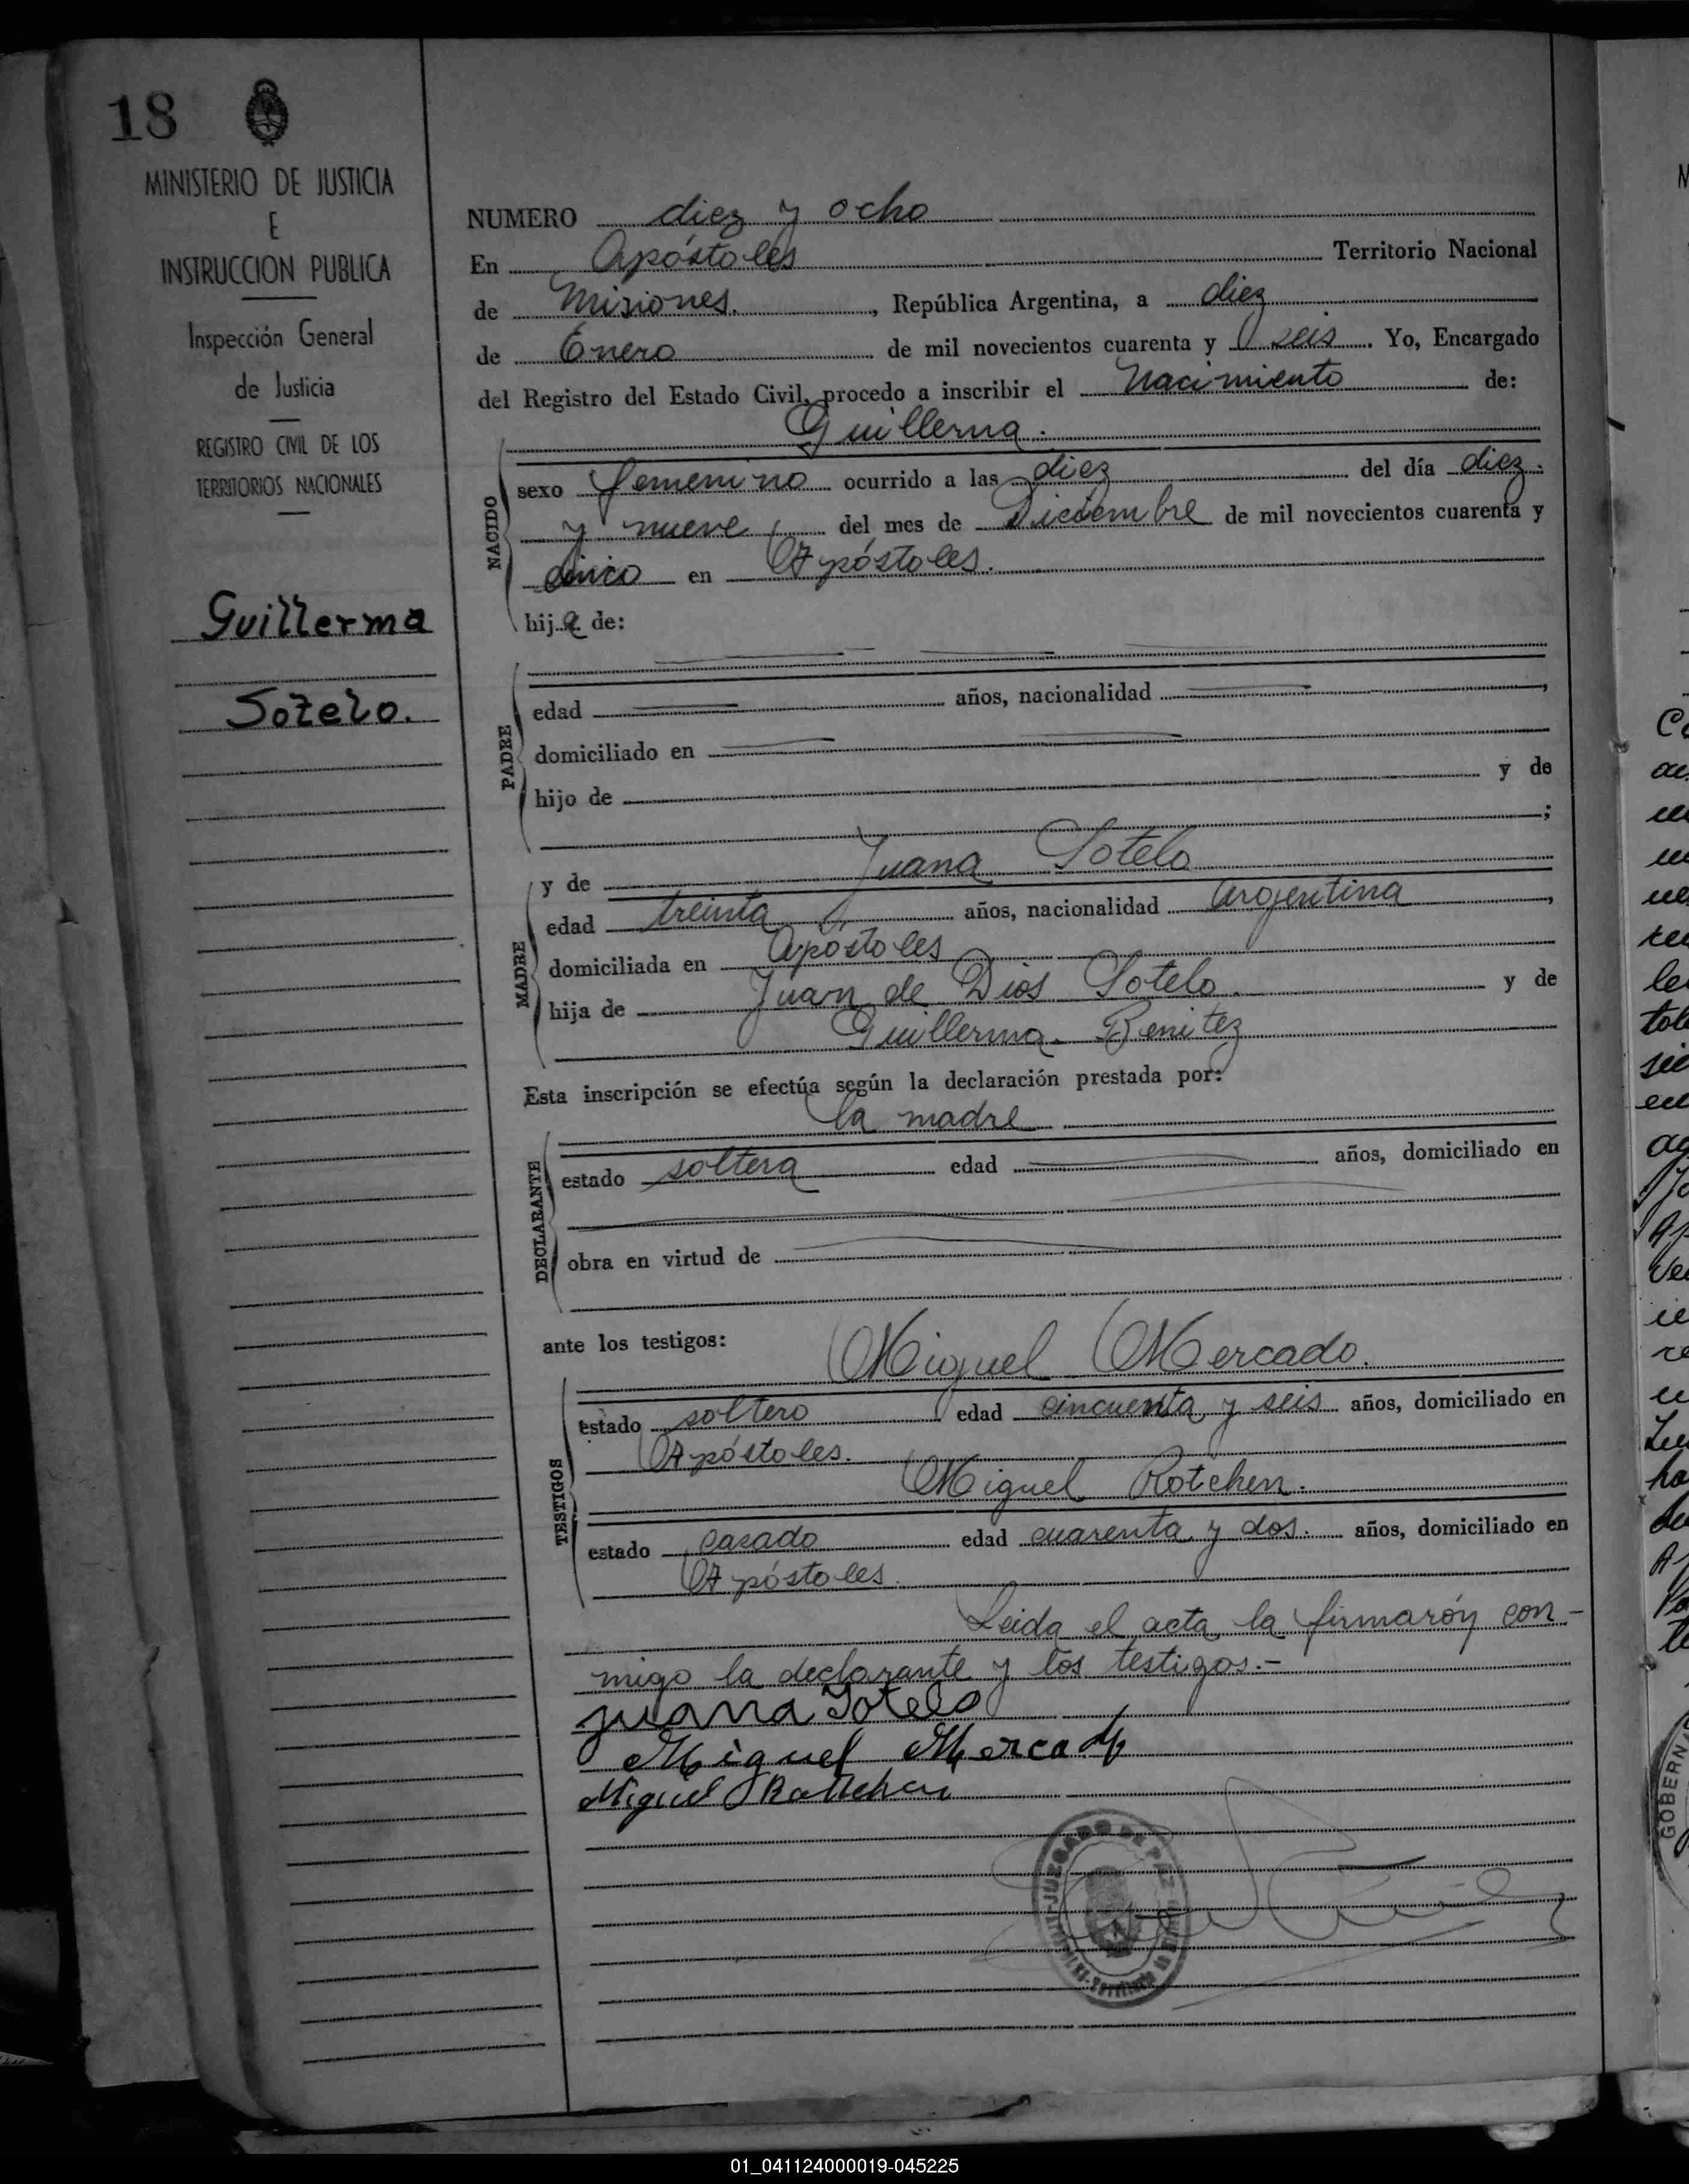 18
MINISTERIO DE JUSTICIA
E
INSTRUCCION PUBLICA
Inspección General
de Justicia
REGISTRO CIVIL DE LOS
TERRITORIOS NACIONALES
Guillerma
Sotelo.
NUMERO diez y ocho
En Apóstoles Territorio Nacional
de Misiones. , República Argentina, a diez
de Enero de mil novecientos cuarenta y seis. Yo, Encargado
del Registro del Estado Civil, procedo a inscribir el Nacimiento de:
Guillerma.
NACIDO
sexo femenino ocurrido a las diez del día diez
y nueve del mes de Diciembre de mil novecientos cuarenta y
cinco en Apóstoles.
hija de:
PADRE
edad años, nacionalidad ,
domiciliado en
hijo de y de
;
MADRE
y de Juana Sotelo
edad treinta años, nacionalidad Argentina ,
domiciliada en Apóstoles
hija de Juan de Dios Sotelo. y de
Guillerma Benitez
Esta inscripción se efectúa según la declaración prestada por:
la madre
DECLARANTE
estado soltera edad años, domiciliado en
obra en virtud de
ante los testigos:
Miguel Mercado.
TESTIGOS
estado soltero edad cincuenta y seis años, domiciliado en
Apóstoles.
Miguel Rotchen.
estado casado edad cuarenta y dos. años, domiciliado en
Apóstoles.
Leida el acta la firmarón con-
migo la declarante y los testigos.-
juana Sotelo
Miguel Mercado
Miguel
JUZGADO DE PAZ
01_041124000019-045225